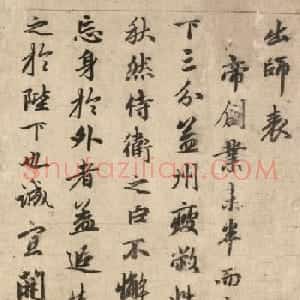 出師表
帝創業未半而
下三分益州疲敝
秋然侍衛之臣不懈
忘身於外者蓋追
之於陛下也誠宜開
Shufazilian.com